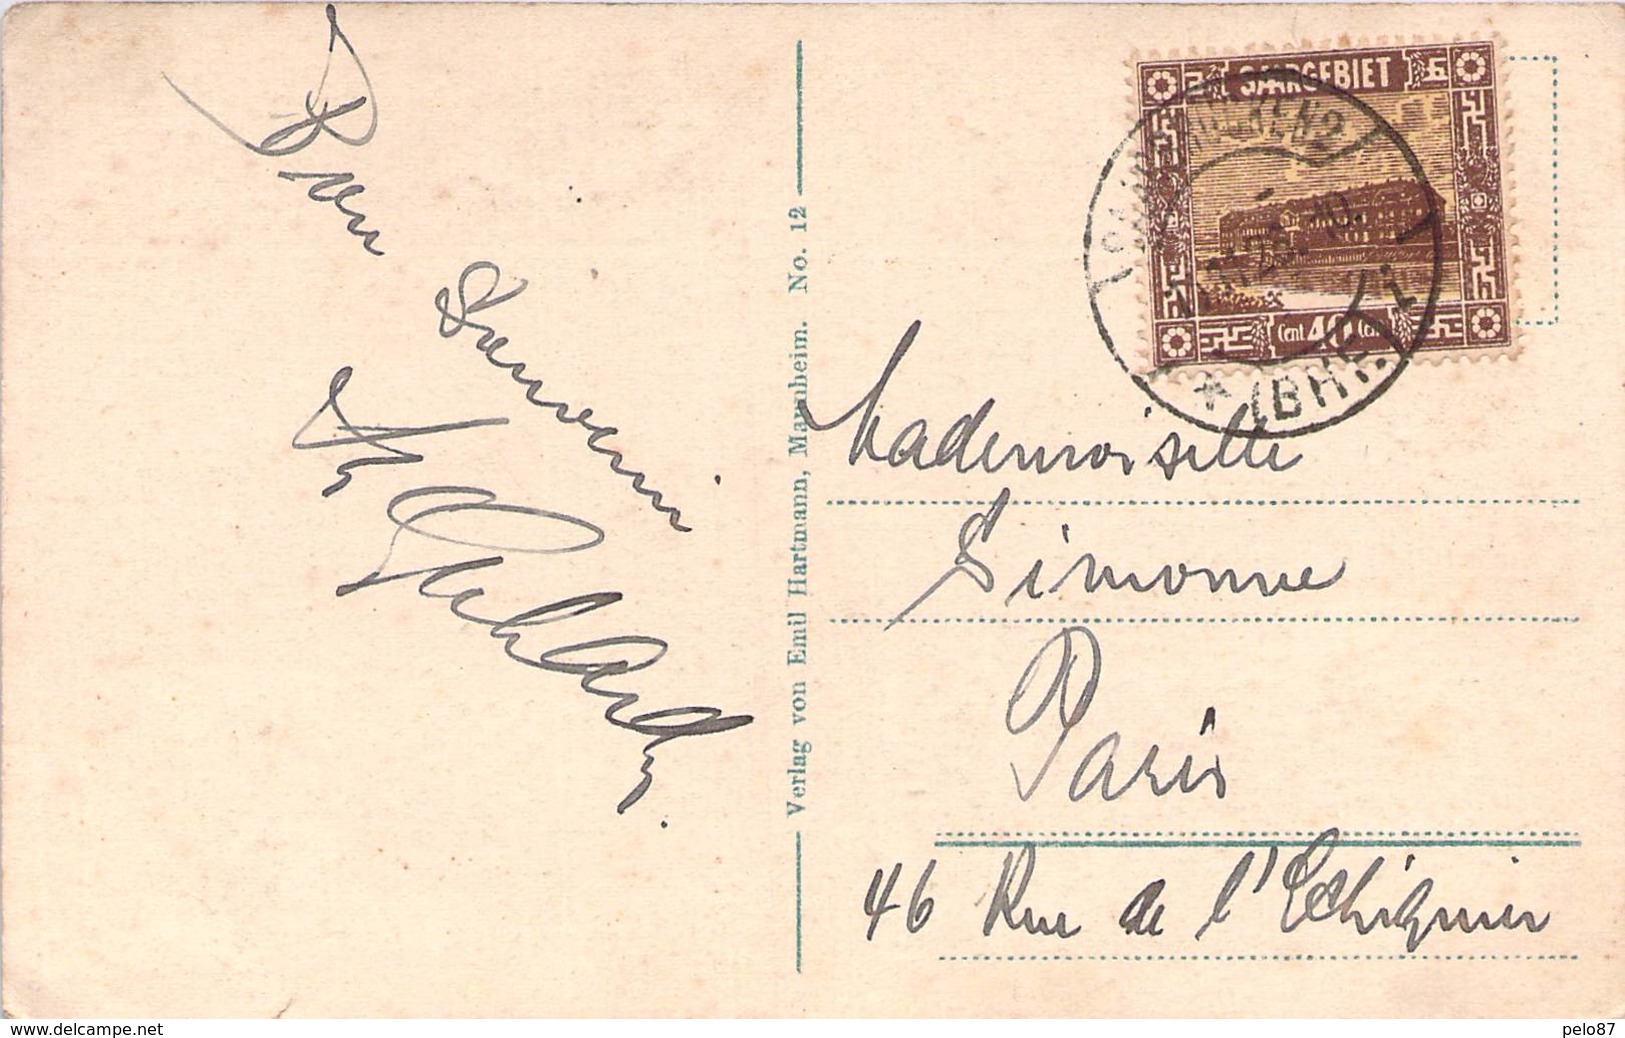 Bon
Souvenir
Verlag von Emil Hartmann, Mannheim. No. 12
SAARGEBIET
Cent 40 Cent
SAARBRÜCKEN 2
(BHF.)
Mademoiselle
Simonne
Paris
46 Rue de l'Echiquier
www.delcampe.net
pelo87